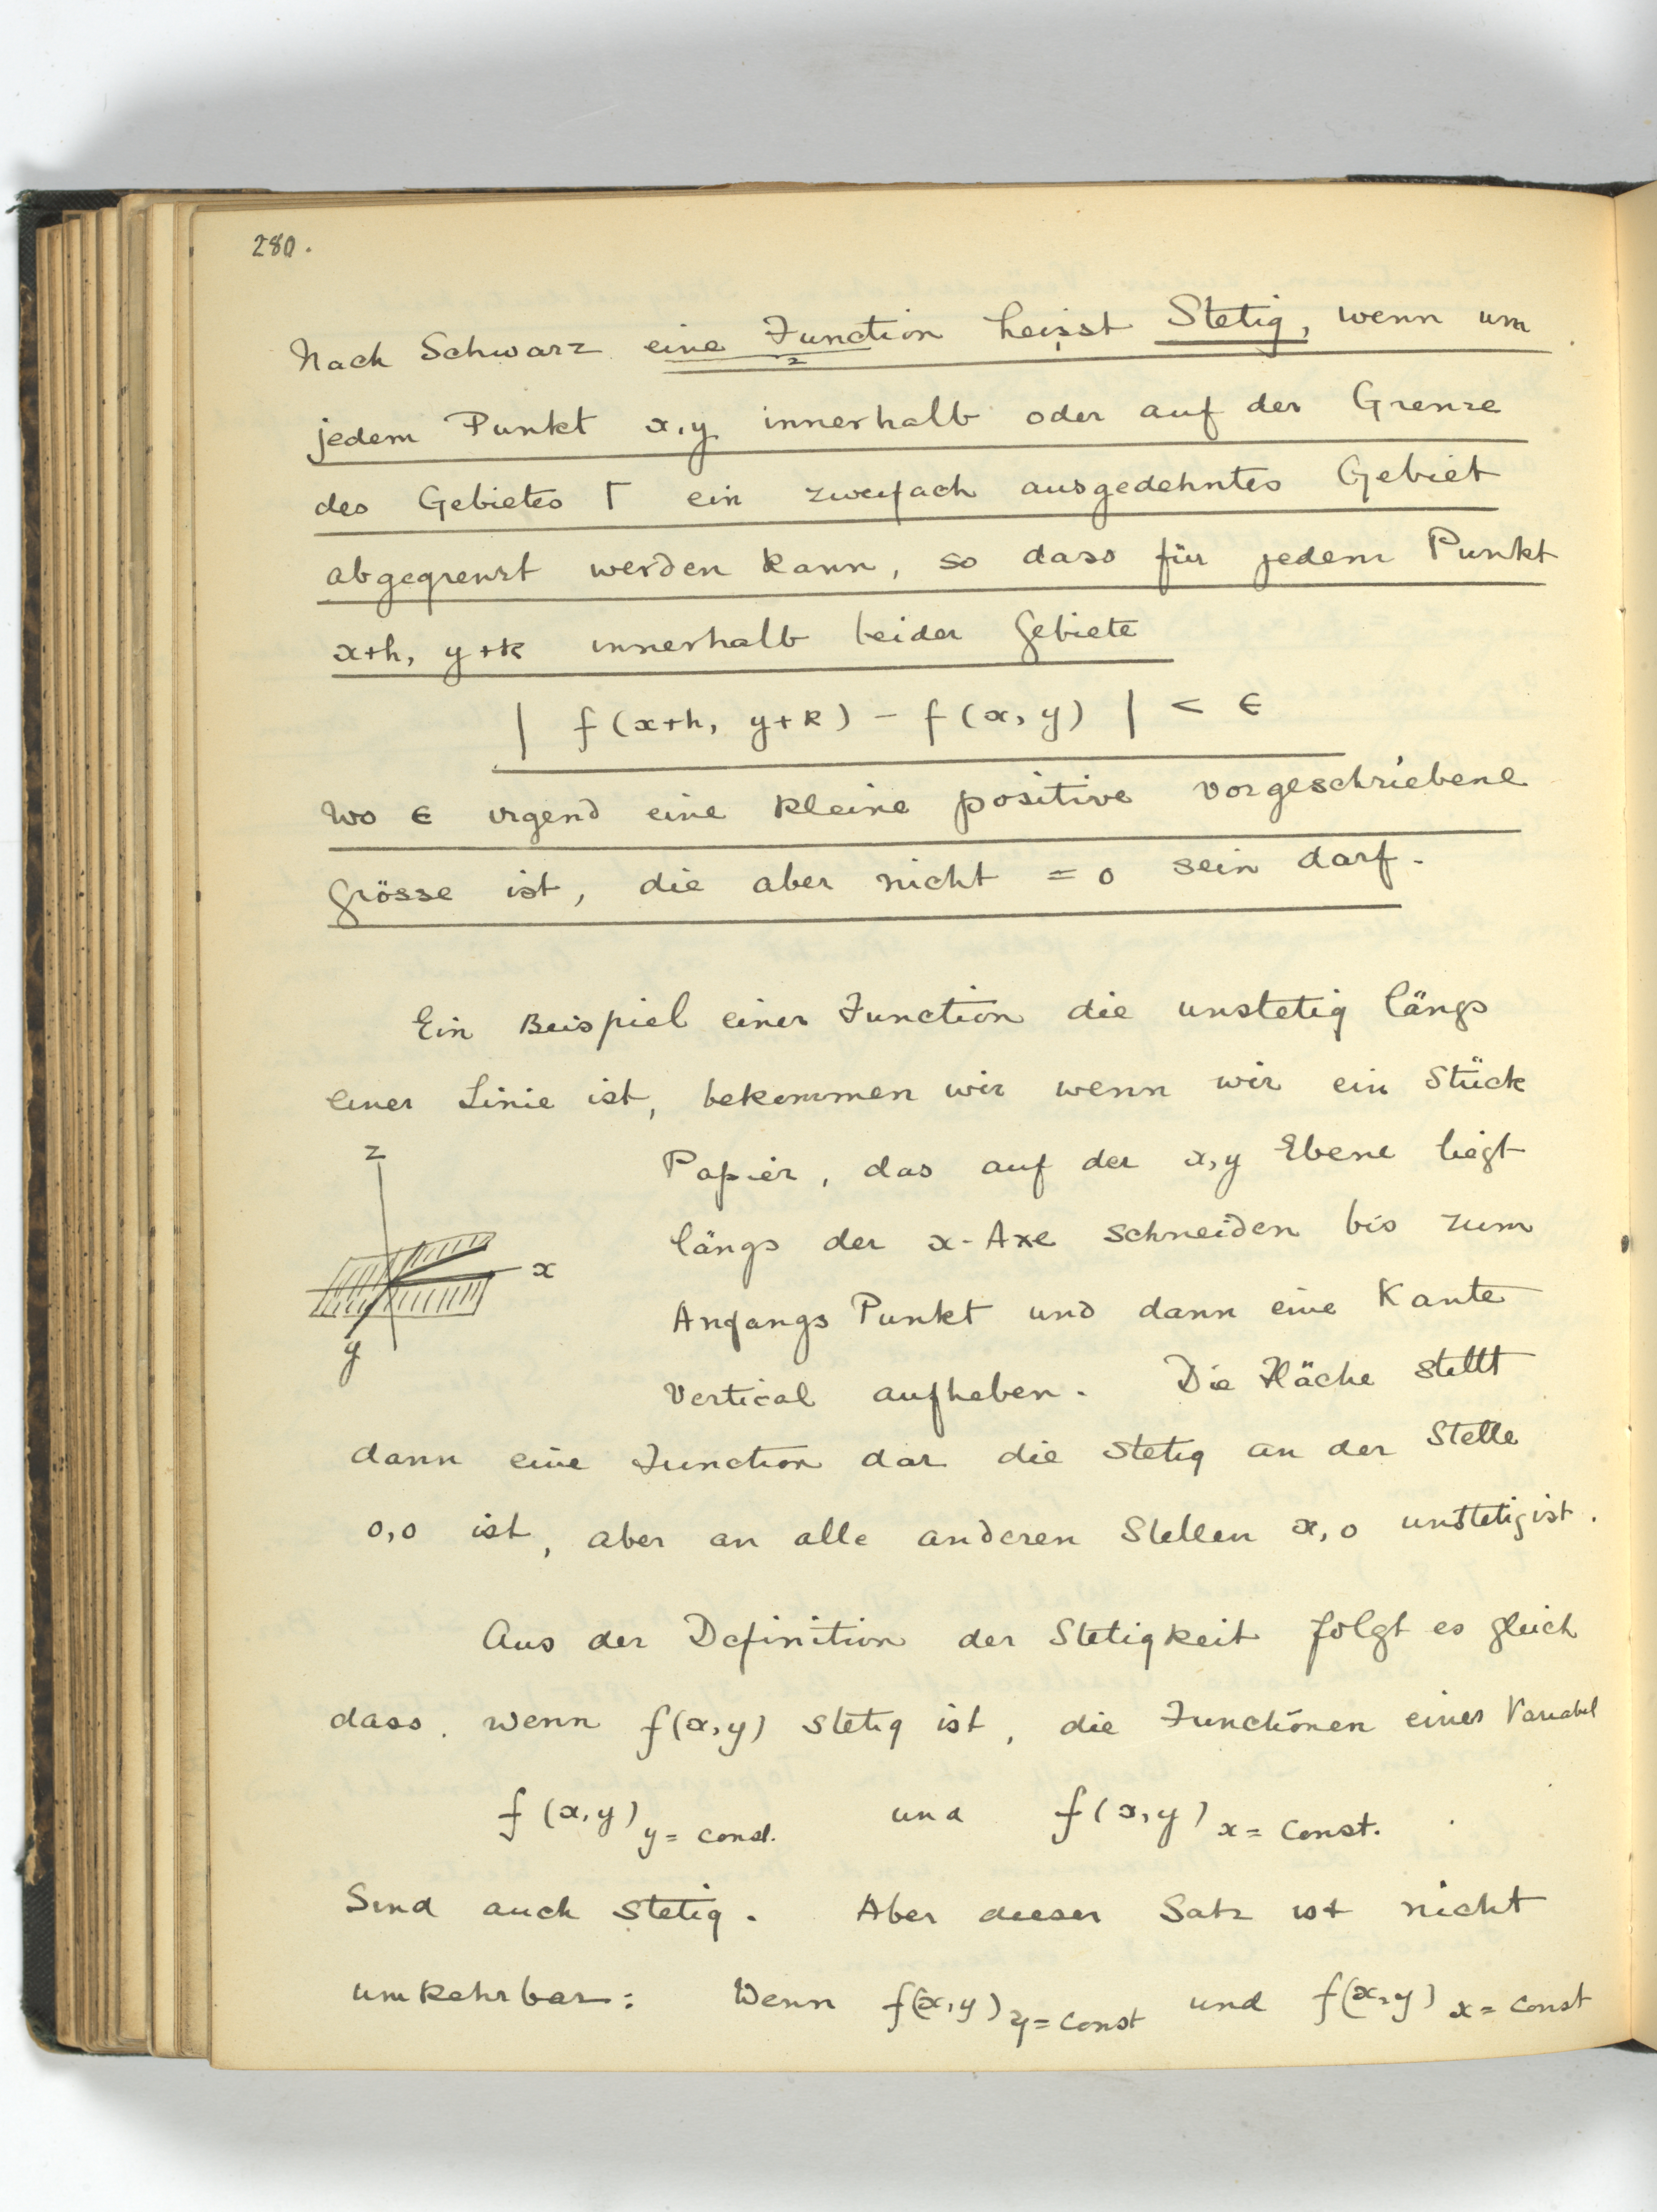 280.
Nach Schwarz eine Function heisst Stetig, wenn um
jedem Punkt x,y innerhalb oder auf der Grenze
des Gebietes Γ ein zweifach ausgedehntes Gebiet
abgegrenzt werden kann, so dass für jedem Punkt
x+h, y+k innerhalb beider Gebiete
| f(x+h, y+k) - f(x, y) | < ϵ
wo ϵ irgend eine kleine positive vorgeschriebene
Grösse ist, die aber nicht = 0 sein darf.
Ein Beispiel einer Function die unstetig längs
einer Linie ist, bekommen wir wenn wir ein Stück
Papier, das auf der x,y Ebene liegt
längs der x-Axe schneiden bis zum
Anfangs Punkt und dann eine Kante
Vertical aufheben. Die Fläche stellt
z
x
y
dann eine Function dar die stetig an der Stelle
0,0 ist, aber an alle anderen Stellen x,0 unstetig ist.
Aus der Definition der Stetigkeit folgt es gleich
dass, wenn f(x,y) stetig ist, die Functionen einer Variabel
f(x,y) y = const. und f(x,y) x = const.
Sind auch stetig. Aber dieser Satz ist nicht
umkehrbar: Wenn f(x,y) y = const und f(x,y) x = const